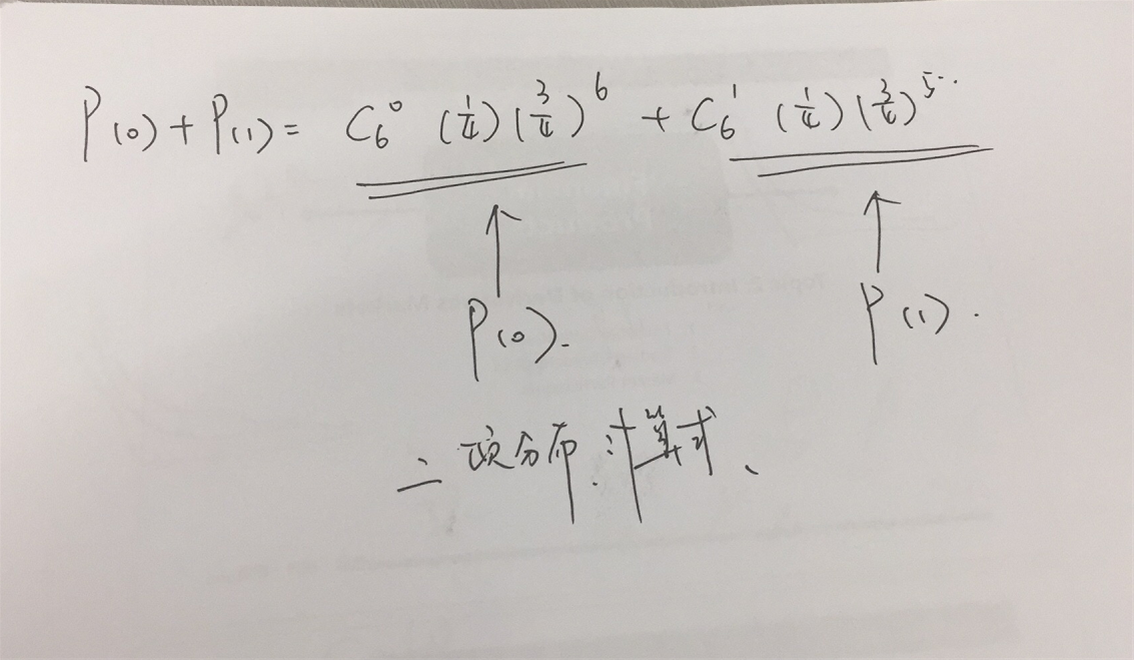 P(0)+P(1)= C₆⁰ (1/4)(3/4)⁶ + C₆¹ (1/4)(3/4)⁵..
P(0). P(1).
二项分布计算式、